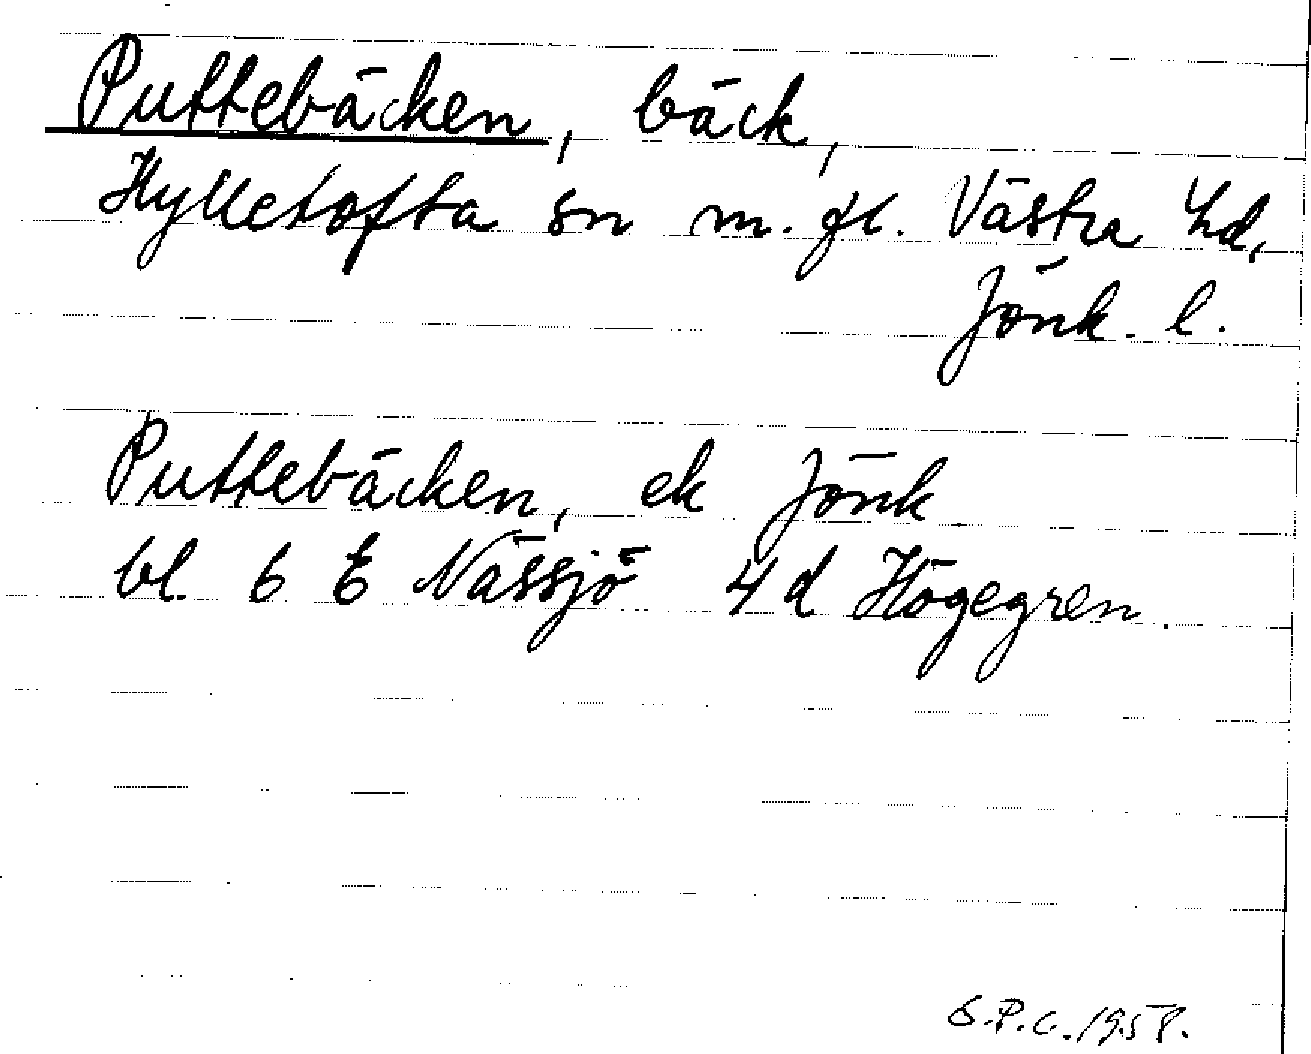 Puttebäcken, bäck,
Hylletofta sn m. fl. Västra hd,
Jönk. l.
Puttebäcken, ek Jönk
bl. 6 E Nässjö 4 d Högegren.
G.P.C. 1958.